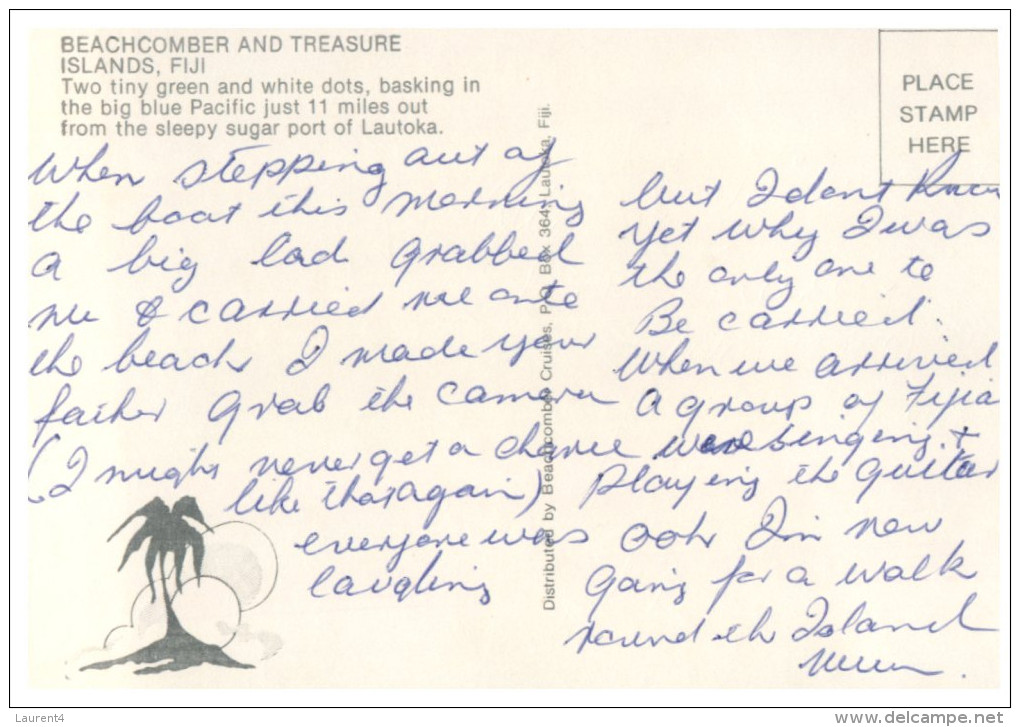 BEACHCOMBER AND TREASURE
ISLANDS, FIJI
Two tiny green and white dots, basking in
the big blue Pacific just 11 miles out
from the sleepy sugar port of Lautoka.
PLACE
STAMP
HERE
When stepping out of
the boat this morning
a big lad grabbed
me & carried me onto
the beach I made your
father grab the camera
(I might never get a chance
like that again)
everyone was
laughing
but I dont know
yet why I was
the only one to
Be carried.
When we arrived
A group of Fijia
were singing +
playing the guitar
ooh Im now
Going for a walk
round the Island
Mum.
Distributed by Beachcomber Cruises, P.O. Box 364, Lautoka, Fiji.
Laurent4
www.delcampe.net